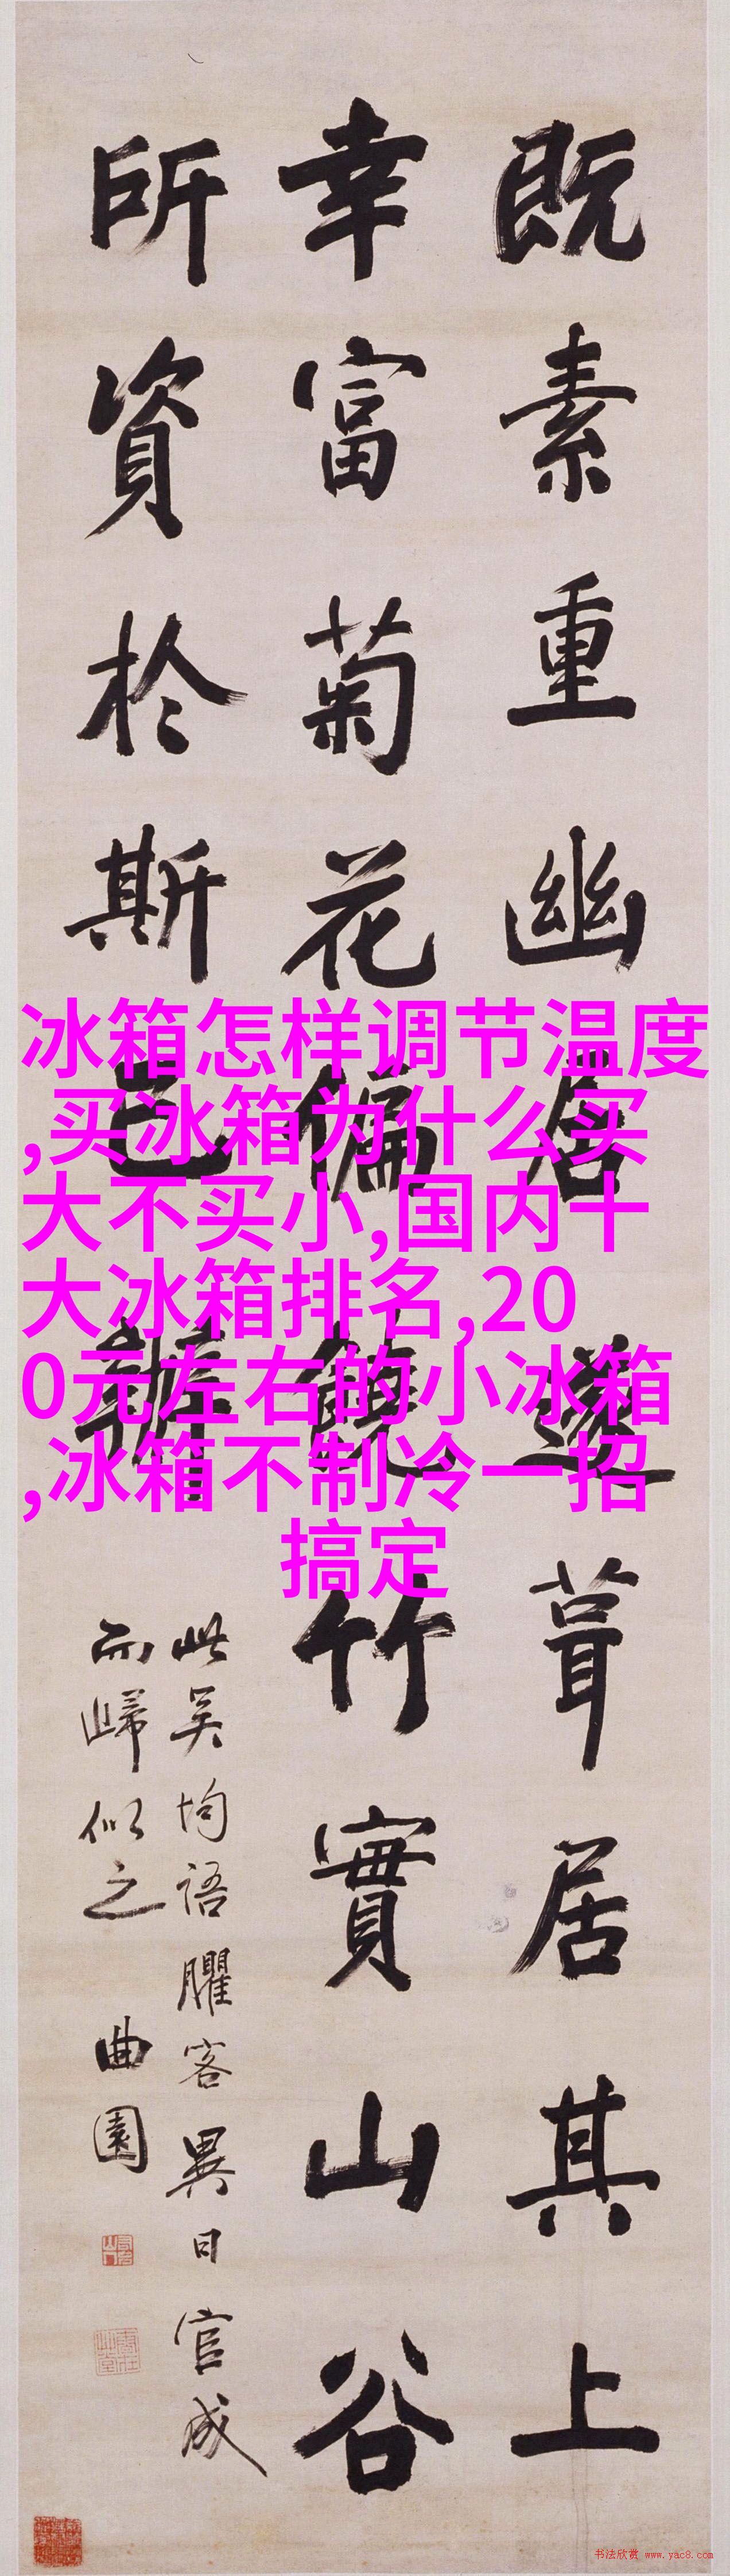 既素重幽居遂葺居其上
幸富菊花偏饒竹實山谷
所資於斯已辦
此吴均語臞客異日官成
而歸似之 曲園
冰箱怎样调节温度
,买冰箱为什么买
大不买小,国内十
大冰箱排名,20
0元左右的小冰箱
,冰箱不制冷一招
搞定
书法欣赏 www.yac8.com